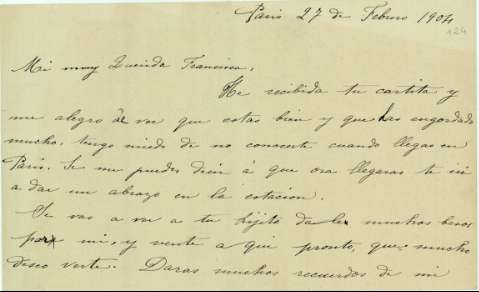 Paris 27 de Febrero 1904
124
Mi muy Querida Francisca.
He recibida tu cartita y
me alegro de ver que estas bien y que has engordado
mucho, tengo miedo de no conocerte cuando llegas en
Paris. Si me puedes dicir á que ora llegaras te iré
a dar un abrazo en la estacion.
Si vas a ver a tu hijito dale muchos besos
por mi, y vente a qui pronto, que mucho
deseo verte. Daras muchos recuerdos de mi